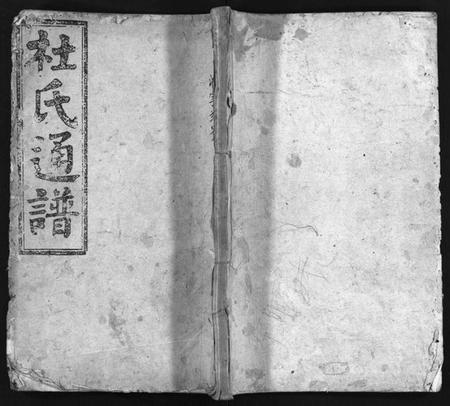 杜氏通譜